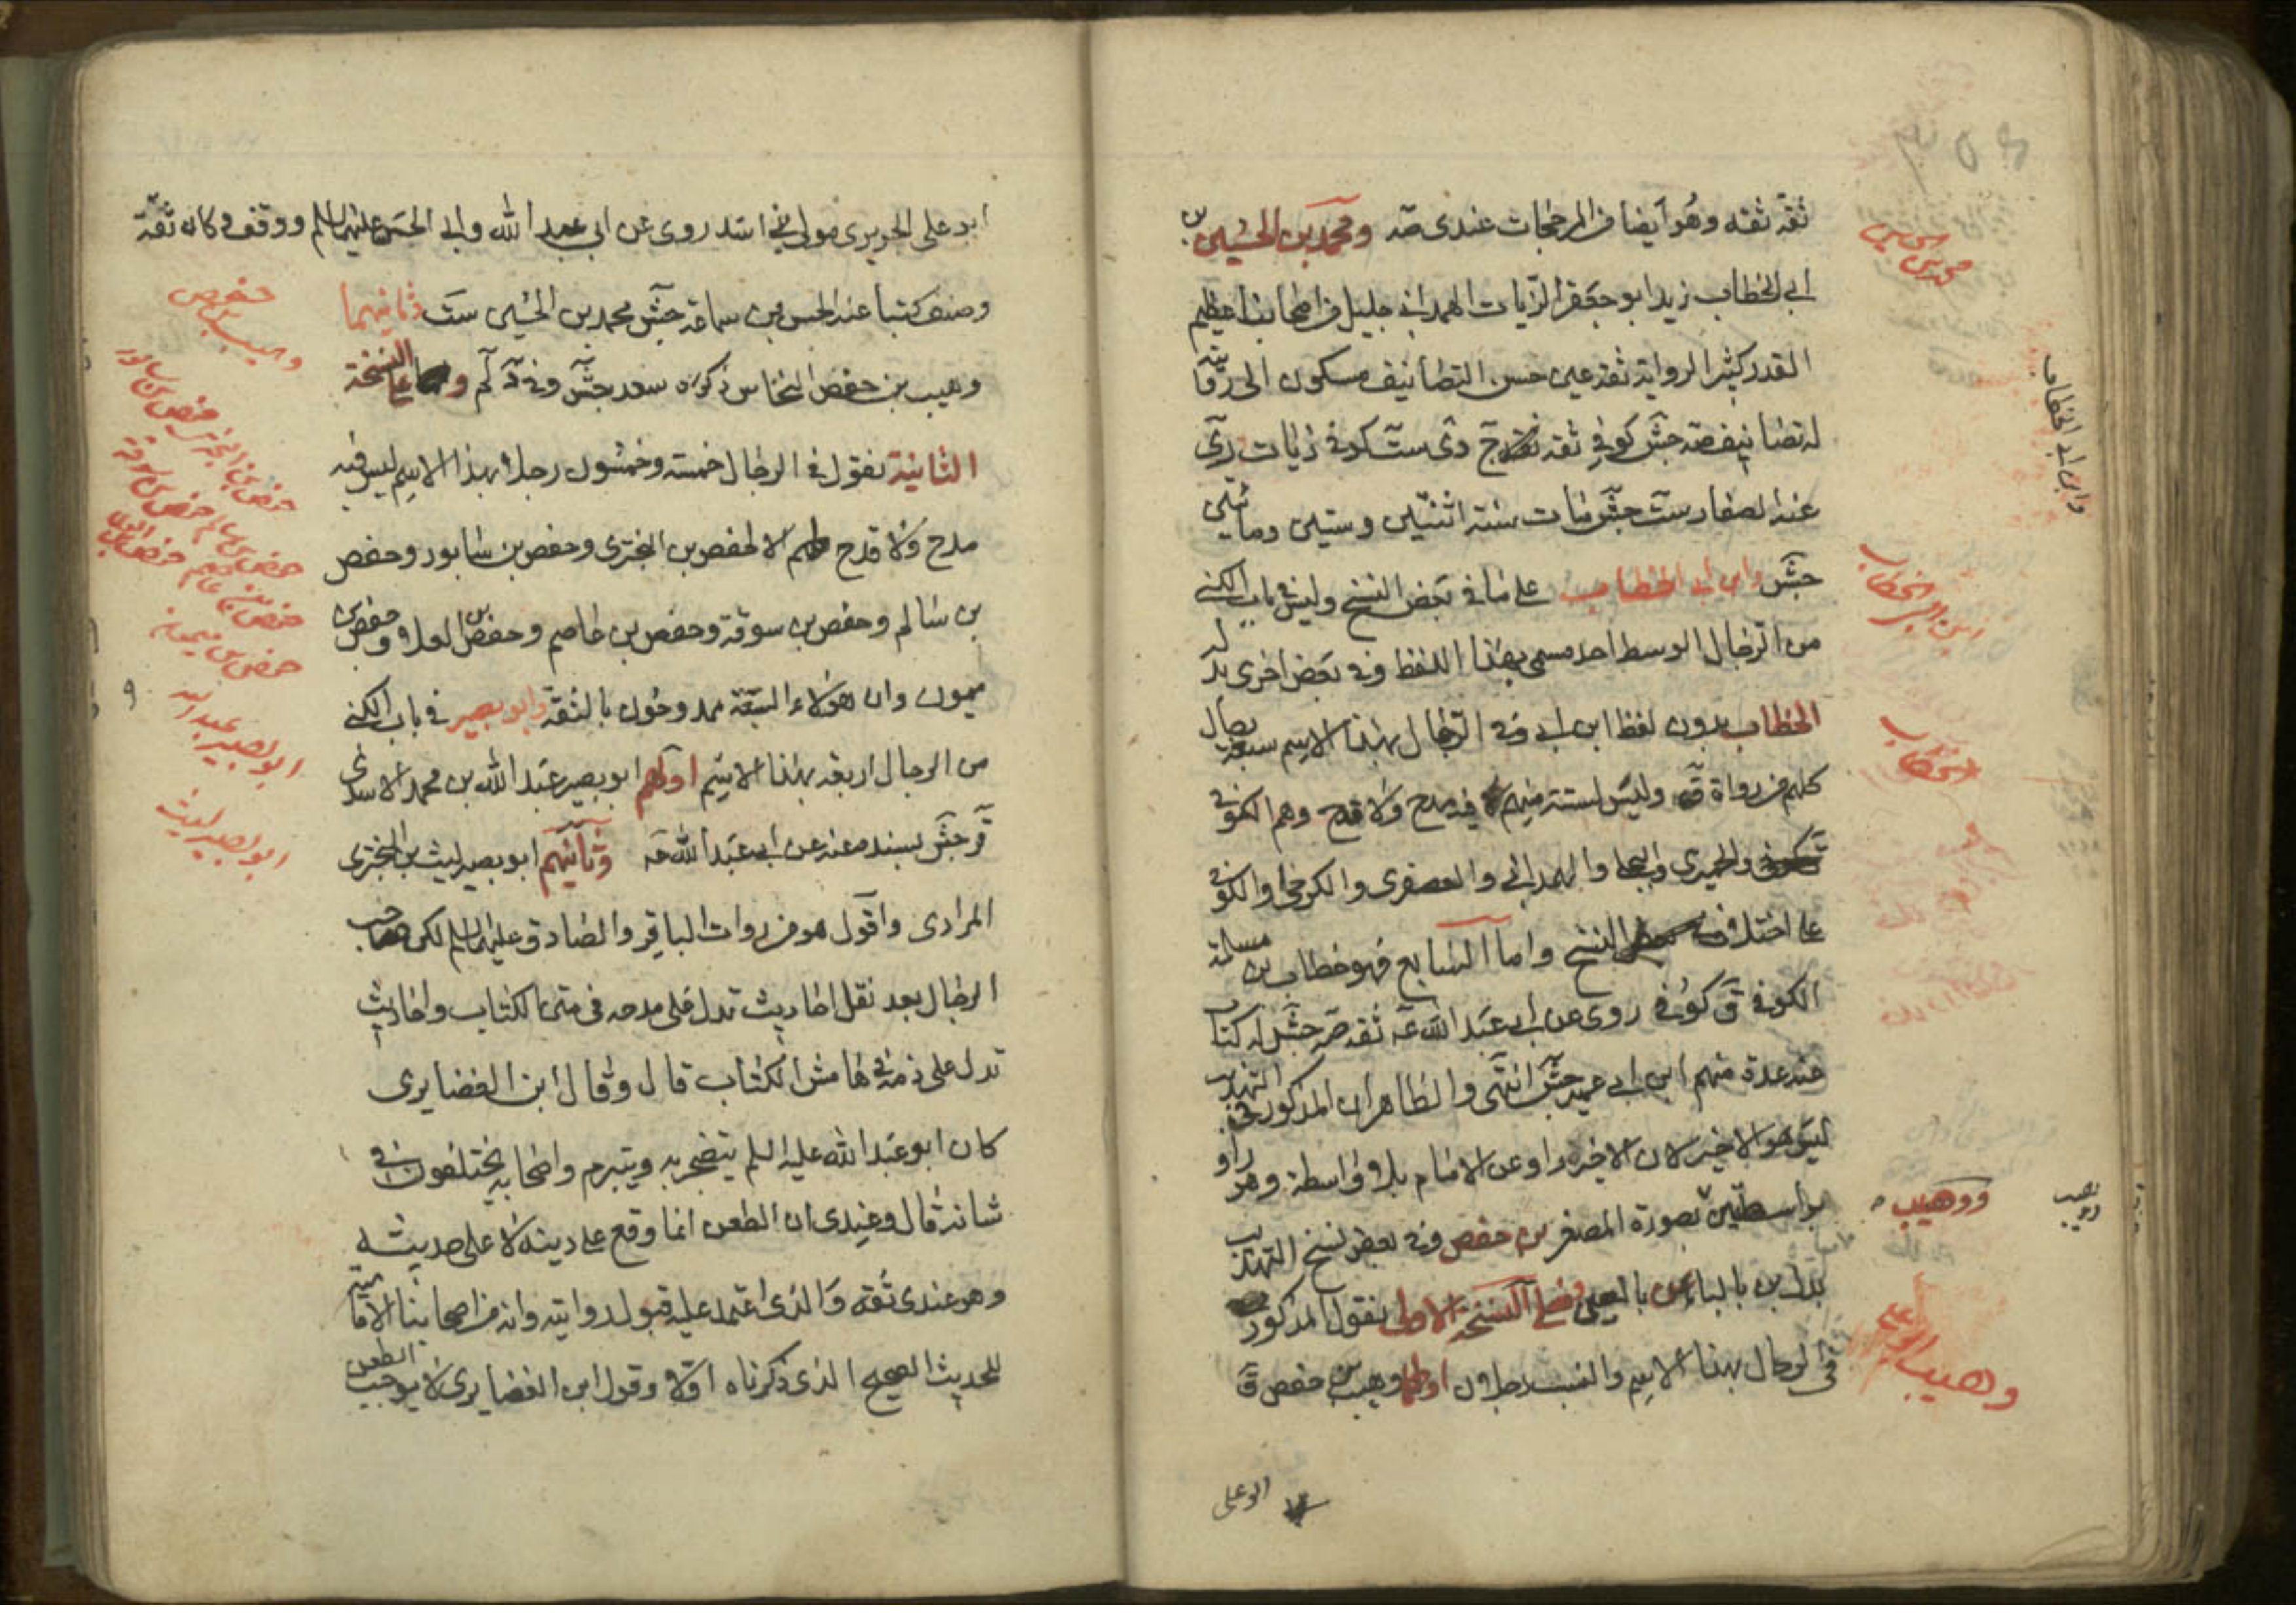 ثقة ثقه وهو ايضا من المرجحات عندى صه ومحمد بن الحسين بن
ابى الخطاب زيد ابو جعفر الزيات الهمدانى جليل من اصحابنا عظيم
القدر كثير الرواية ثقه عين حسن التصانيف مسكون الى روايته
له تصانيف صه جش كوفى ثقه دى ست كوفى زيات رى
عنه الصفار ست جش مات سنة اثنتين وستين ومائتين
جش وابن ابى الخطاب على ما فى بعض النسخ وليس فى باب الكنى
من الرجال الوسط احد مسمى بهذا اللفظ وفى بعض اخرى بدله
الخطاب بدون لفظ ابن ابى وفى الرجال بهذا الاسم سبعة رجال
كلهم من رواة ق وليس لستة منهم فيه مدح ولا قدح وهم الكوفى
والحميرى والبجلى والهمدانى والعصفرى والكرخى والكوفى
على اختلاف النسخ واما السابع فهو خطاب بن مسلمة
الكوفى ق كوفى روى عن ابى عبد الله عه ثقه صه جش له كتاب
عنه عدة منهم ابن ابى عمير جش انتهى والظاهر ان المذكور فى التهذيب
ليس هو الاخير لان الاخير راو عن الامام بلا واسطة وهو راو
بواسطتين بصورة المصغر بن حفص وفى بعض نسخ التهذيب
بدل بن بالباء عن بالعين فعلى النسخة الاولى نقول المذكور
فى الرجال بهذا الاسم والنسب رجلان اولهما وهيب بن حفص ق
ابو على
محمد بن حسين
وابن ابى الخطاب
ابن ابى الخطاب
الخطاب
ووهيب
وهيب ابو على
ابو على الجريرى مولى بنى اسد روى عن ابى عبد الله وابى الحسن عليهما السلم ووقف وكان ثقة
وصنف كتبا عنه الحسن بن سماعة جش محمد بن الحسين ست ثانيهما
وهيب بن حفص النخاس ذكره سعد جش وفى لم وعلى النسخة
الثانية نقول فى الرجال خمسة وخمسون رجلا بهذا الاسم ليس فيه
مدح ولا قدح الا لحفص بن البخترى وحفص بن شابور وحفص
بن سالم وحفص بن سوقة وحفص بن عاصم وحفص بن العلا وحفص بن
ميمون وان هؤلاء السبعة ممدوحون بالثقة وابو بصير فى باب الكنى
من الرجال اربعة بهذا الاسم اولهم ابو بصير عبد الله بن محمد الاسدى
قر جش بسند معنعن ابى عبد الله عه وثانيهم ابو بصير ليث بن البخترى
المرادى واقول هو من روات الباقر والصادق عليهما السلم لكن صاحب
الرجال بعد نقل احاديث تدل على مدحه فى متن الكتاب واحاديث
تدل على ذمه فى هامش الكتاب قال وقال ابن الغضايرى
كان ابو عبد الله عليه السلم يتضجر به ويتبرم واصحابه يختلفون فى
شانه قال وعندى ان الطعن انما وقع على دينه لا على حديثه
وهو عندى ثقه والذى اعتمد عليه قبول روايته وانه من اصحابنا الامامية
للحديث الصحيح الذى ذكرناه اولا وقول ابن الغضايرى لا يوجب الطعن
حفص
وهيب بن
حفص بن البخترى حفص بن سابور
حفص بن سالم حفص بن سوقة
حفص بن عاصم حفص بن العلا
حفص بن ميمون
ابو بصير عبد الله
ابو بصير ليث